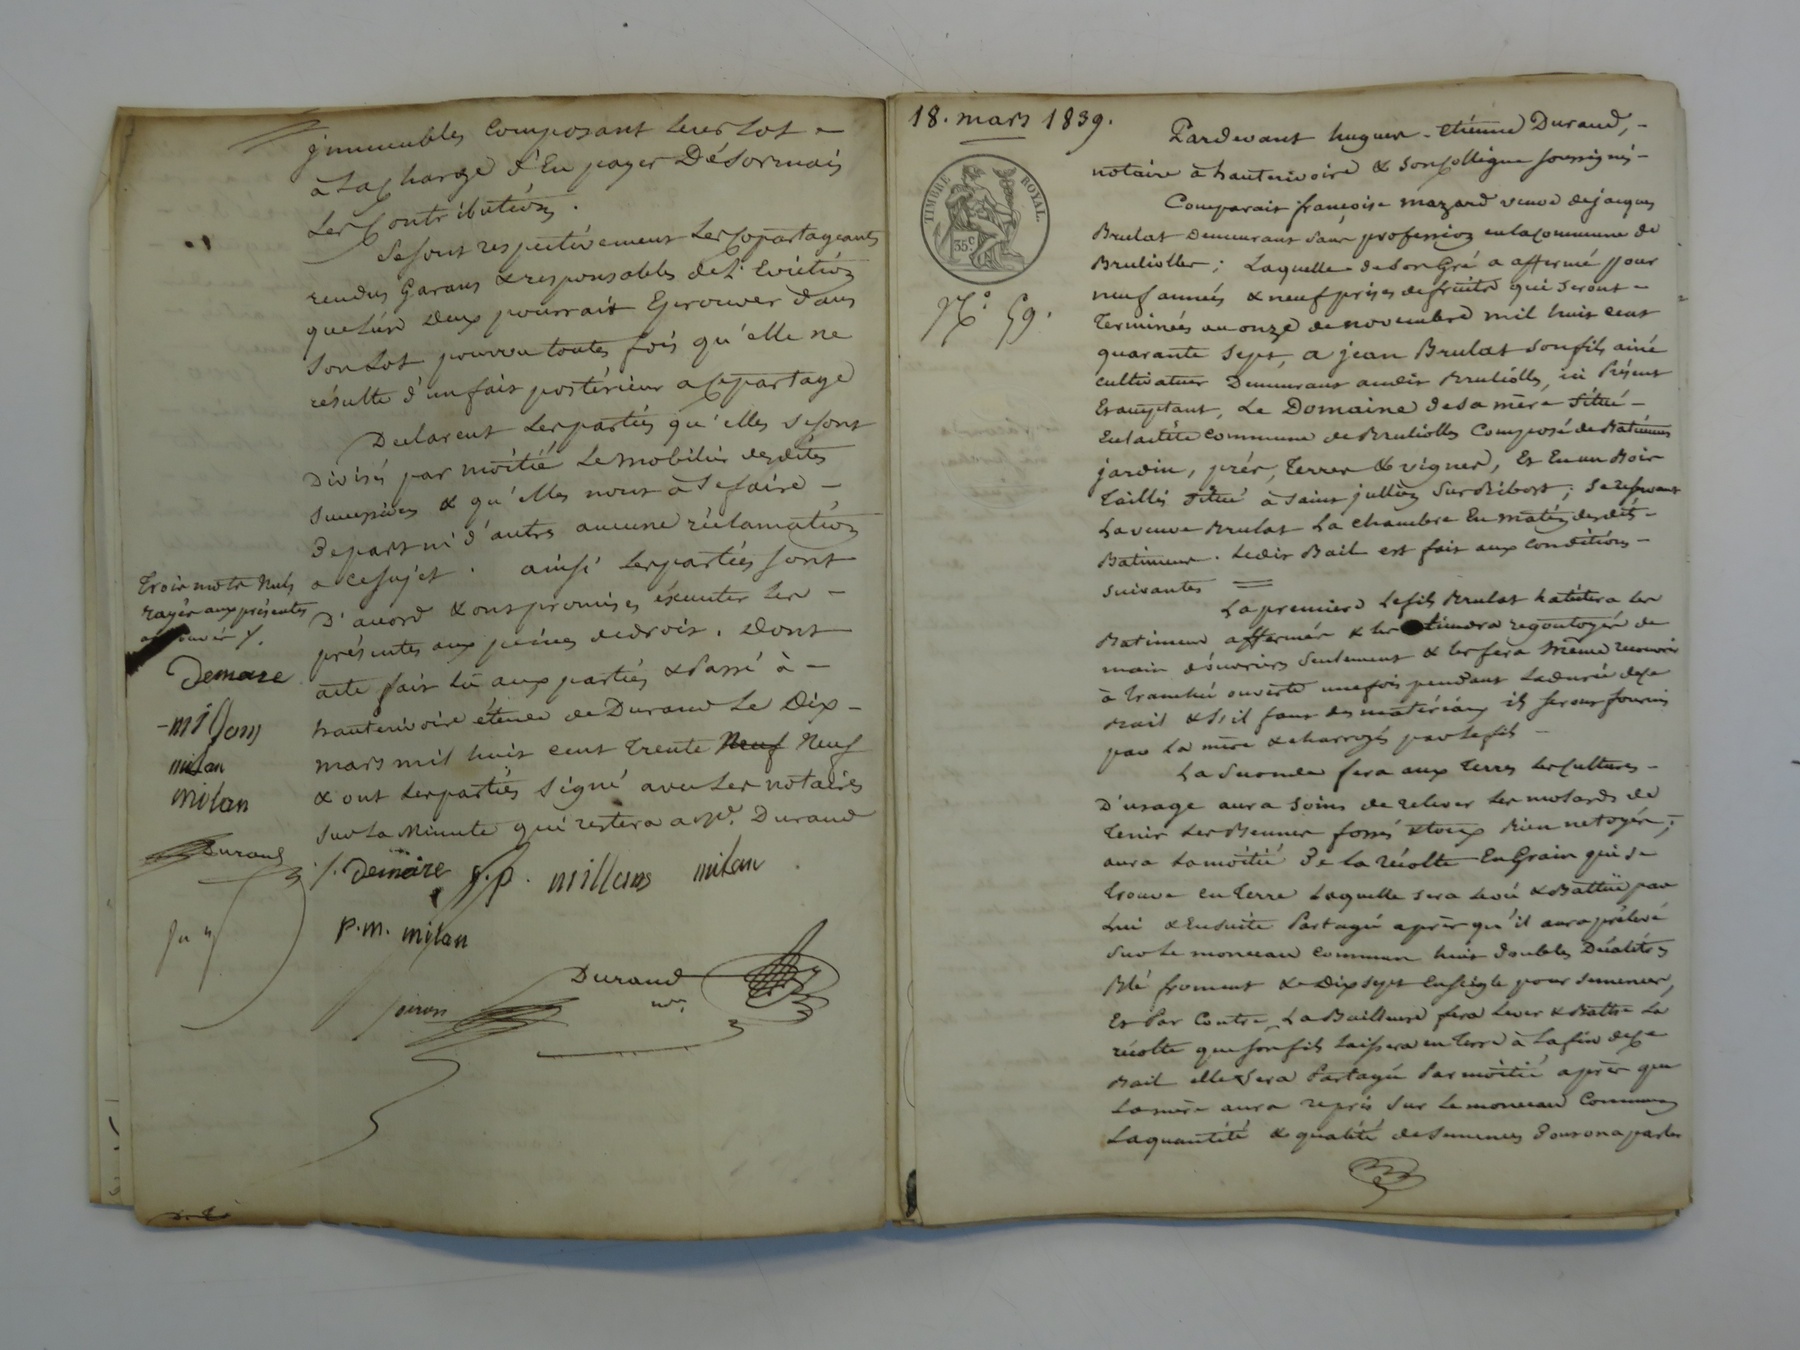 immeubles composant leur lot =
à la charge d'en payer Désormais
les contributions.
Se sont respectivement les copartageants
rendus garans & responsables de l'Eviction
que l'une deux pourrait Eprouver dans
son lot pourvu toutes fois qu'elle ne
résulte d'un fait postérieur a ce partage
Declarent les parties qu'elles se sont
Divisé par moitié le mobilier desdites
successions & qu'elles nont à se faire –
De part ni d'autre aucune réclamation
a ce sujet. ainsi les parties sont
D'accord & ont promis exécuter les –
présentes aux peines de droit. Dont
acte fait lû aux parties & Passé à –
hauterivoire étude de Durand Le Dix –
mars mil huit cent trente Neuf Neuf
& ont les parties signé avec les notaires
sur la Minute qui restera a Me. Durand
Trois mots nuls
rayés aux présentes
Demare
millans
milan
milan
Durand
Demare j.p. millans milan
p.m. milan
Durand
nre
18. mars 1839.
TIMBRE ROYAL.
35c
No. 59.
Pardevant hugues-etiénne Durand, –
notaire à hauterivoire & son collègue soussignés –
Comparait françoise mazard veuve de jacques
Brulat Demeurant sans profession en la commune de
Brullioles; Laquelle de son Gré a affermé pour
neuf années & neuf prises de fruits qui seront –
terminées au onze de novembre mil huit cent
quarante sept, a jean Brulat son fils ainé
cultivateur Demeurant audit Brulliolles, ici Présent
Et acceptant, Le Domaine de sa mère situé –
En ladite commune de Brulliolles Composé de Batiments
jardin, prés, terres & vignes, Et En un Bois
taillis situé à saint jullien sur Bibost; se reservant
La veuve Brulat La chambre En matin desdits –
Batiments. Ledit Bail est fait aux conditions –
suivantes =
La premiere le fils Brulat habitera les
Batiments affermés & les tiendra regoutoyés de
main d'ouvriers seulement & les fera même recouvrir
à tranchée ouverte une fois pendant La durée de ce
Bail & s'il faut des matériaux ils seront fournis
par La mère & charroyés par le fils –
La seconde fera aux terres les cultures –
D'usage aura soins de relever les molards de
tenir les Biennes fossés & Bien netoyés;
aura La moitié De la récolte En Grain qui se
trouve en terre Laquelle sera levée & Battue par
Lui & Ensuite Partagée après qu'il aura prélevé
sur Le monceau commun huit doubles Décalitres
Blé froment & Dix sept En seigle pour semence,
Et Par Contre, La Bailleuse fera lever & Battre La
récolte que son fils laissera en terre à La fin de ce
Bail elle sera Partagée Par moitié après que
La mère aura repris sur Le monceau Commun
La quantité & qualité de semences dont on a parlé